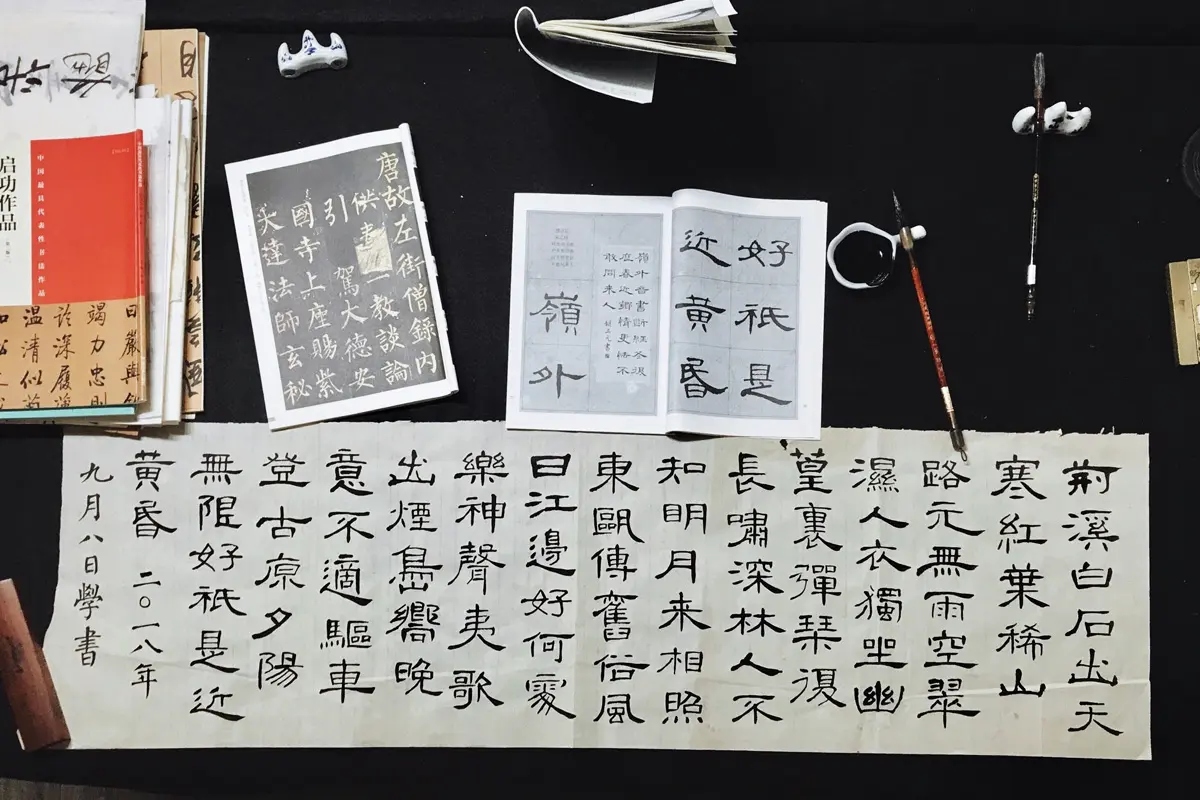 启功作品
中国最具代表性书法作品
曰嚴與
竭力忠則
深履薄
温清似
唐故左街僧錄内
供奉三教談論
引駕大德安
國寺上座賜紫
大達法師玄秘
好祇是
近黃昏
嶺外音書斷經冬復
歷春近鄉情更怯不
敢問来人
嶺外
荊溪白石出天
寒紅葉稀山
路元無雨空翠
濕人衣獨坐幽
篁裏彈琹復
長嘯深林人不
知明月来相照
東甌傳舊俗風
日江邊好何處
樂神聲夷歌
出煙島嚮晚
意不適驅車
登古原夕陽
無限好祇是近
黃昏 二〇一八年
九月八日學書